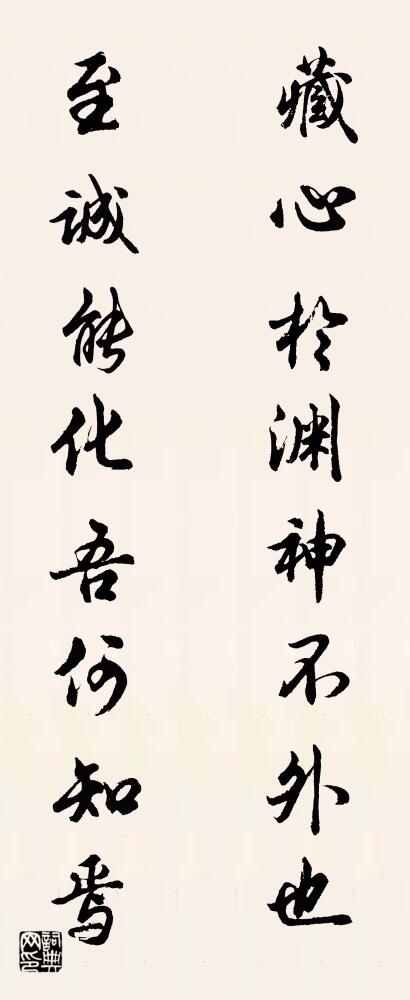 藏心於渊神不外也
至诚能化吾何知焉
詞典網印